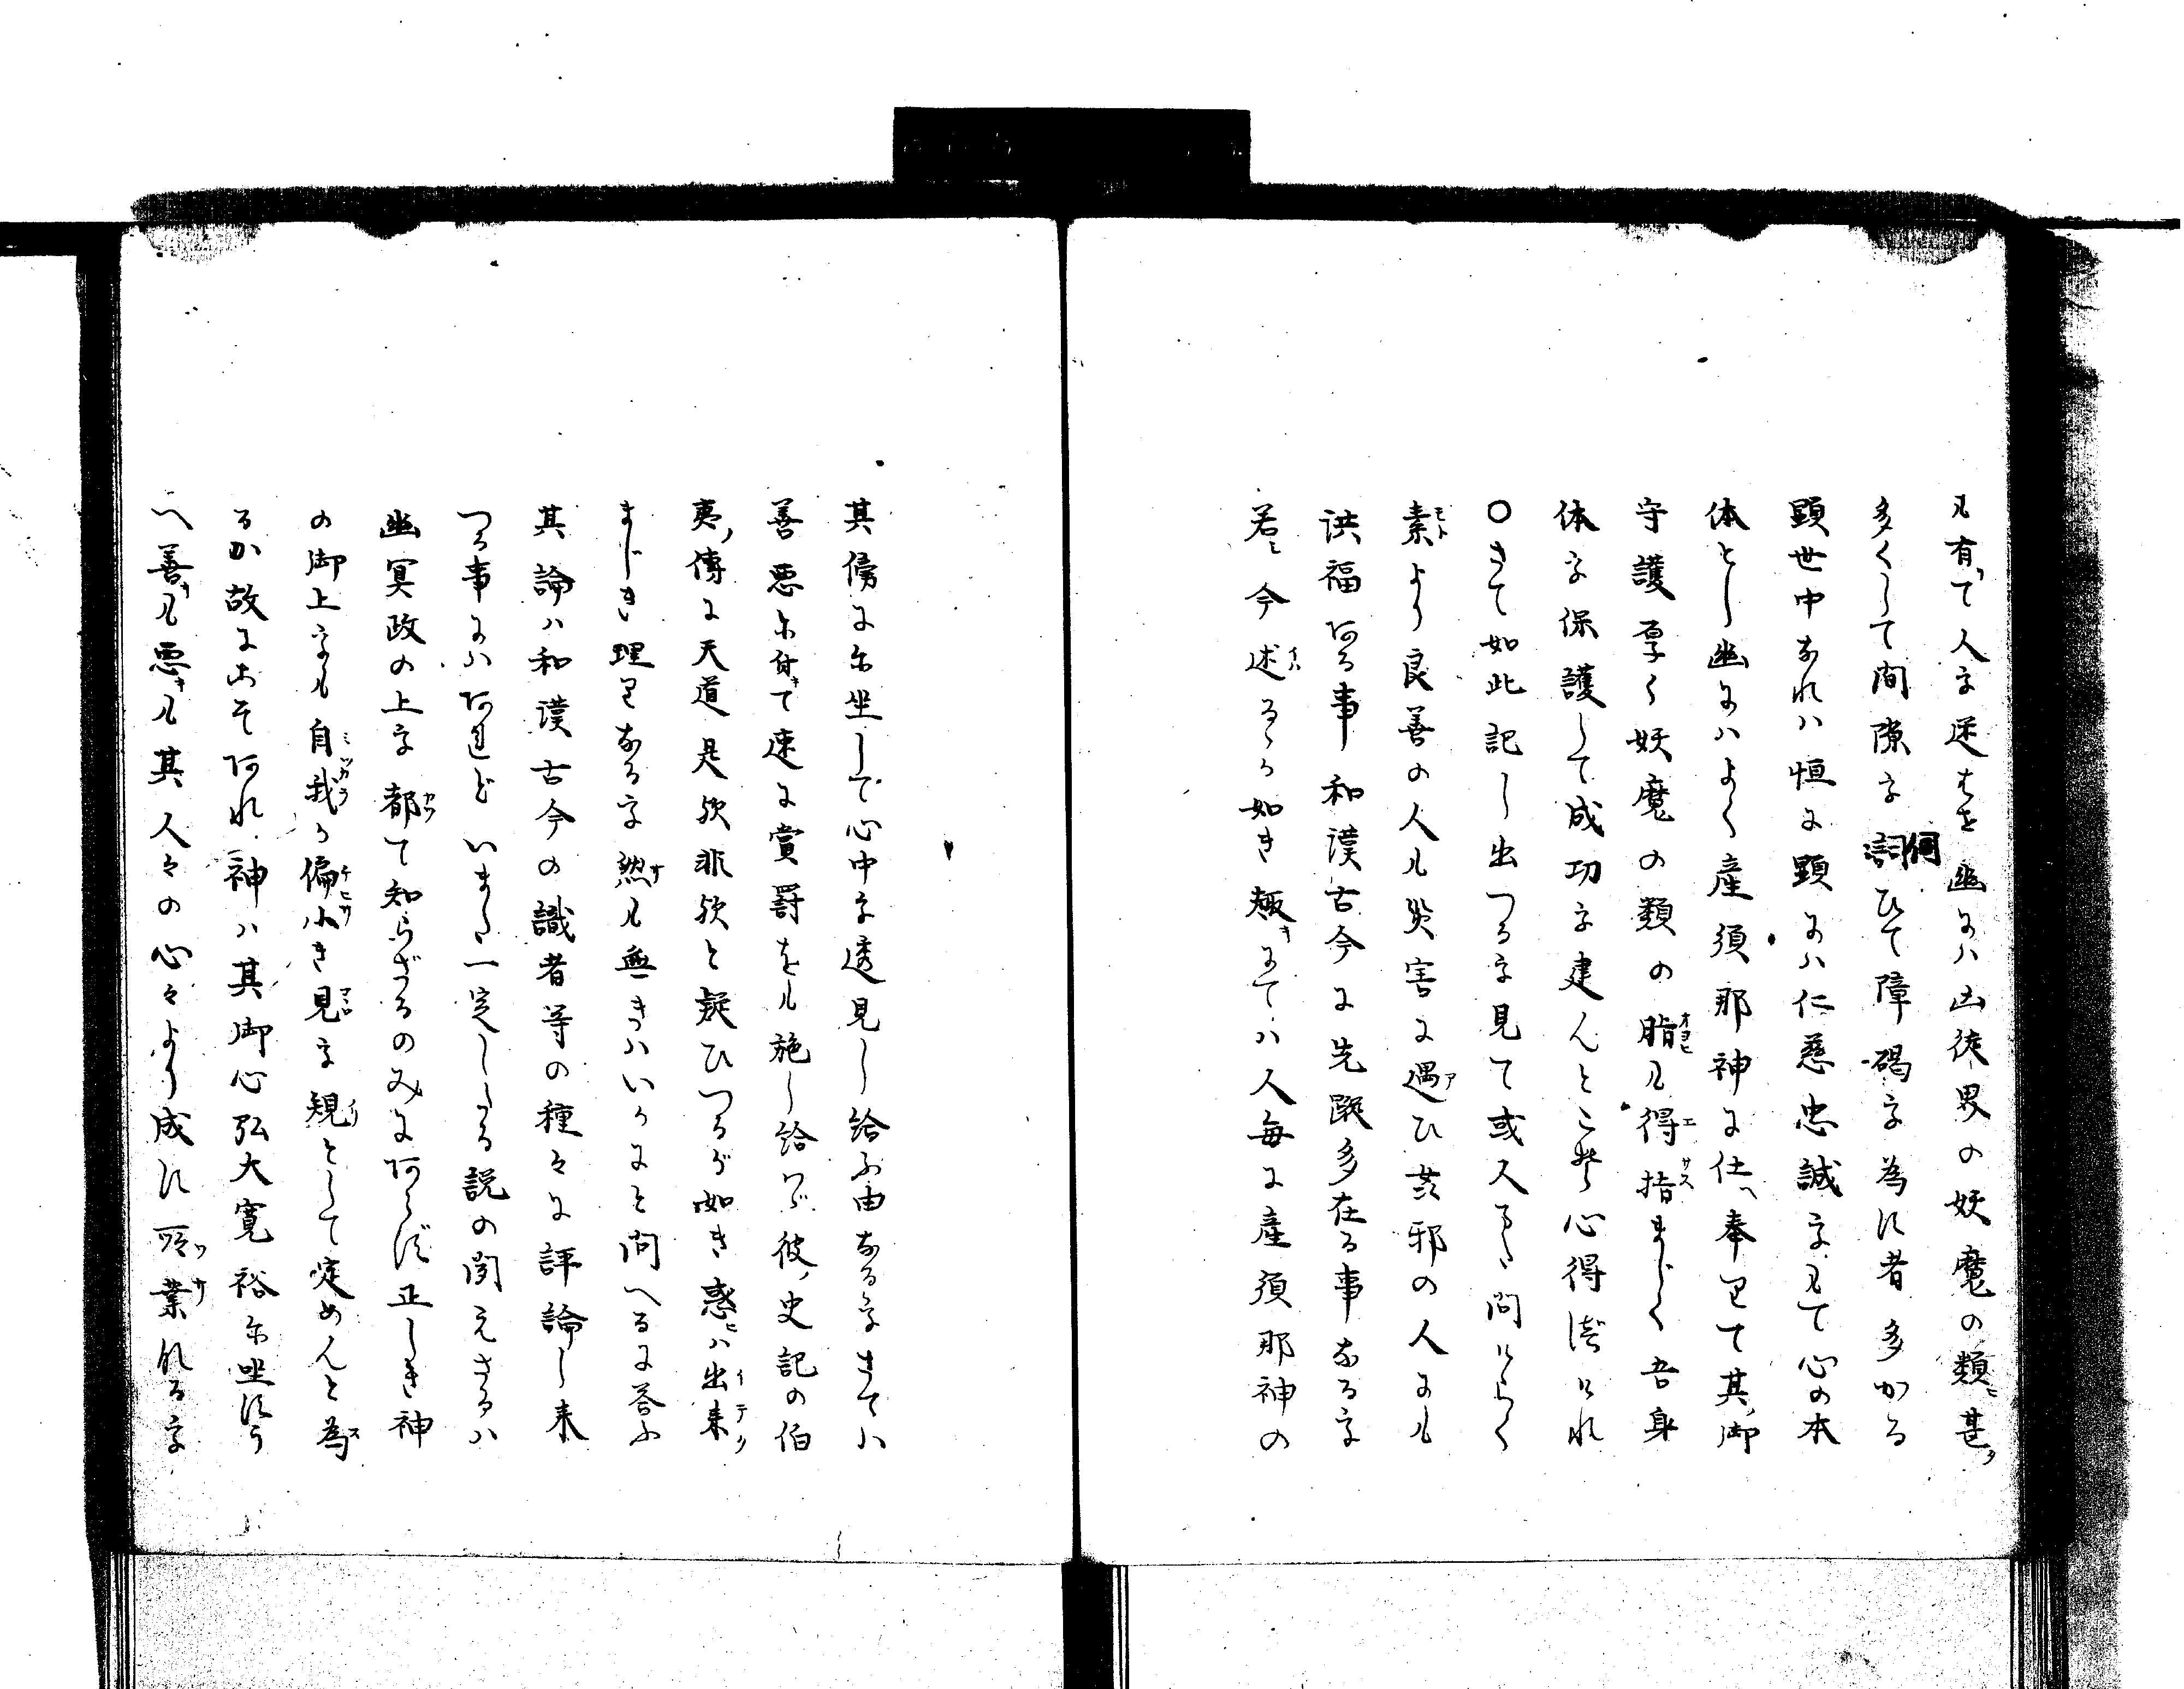 凡有て人を迷はせ幽にハ凶徒界の妖魔の類ニ甚タ
多くして間隙を伺ひて障碍を為す者多かる
顕世中なれハ恒に顕にハ仁慈忠誠を以て心の本
体とし幽にハよく産須那神に仕ヘ奉りて其ノ御
守護厚く妖魔の類の指も得指まじく吾身
体を保護して成功を建んとこそ心得べけれ
○さて如此記し出つるを見て或人また問けらく
素より良善の人も災害に遇ひ甚邪の人にも
洪福ある事和漢古今に先蹤多在る事なるを
若シ今述るか如き趣キにてハ人毎に産須那神の
其傍に坐して心中を透見し給ふ由なるをさてハ
善悪に付キて速に賞罸をも施し給はゞ彼ノ史記の伯
夷ノ傳に天道是歟非歟と疑ひつるが如き惑ヒハ出来
まじき理りなるを然も無きハいかにと問へるに答ふ
其論ハ和漢古今の識者等の種々に評論し来
つる事にハあれどいまた一定したる説の聞えさるハ
幽冥政の上を都て知らざるのみにあらず正しき神
の御上をも自我か偏小き見を規として定めんと為
るか故にこそあれ神ハ其御心弘大寛裕に坐すう
へ善キも悪キも其人々の心々より成す所業なるを